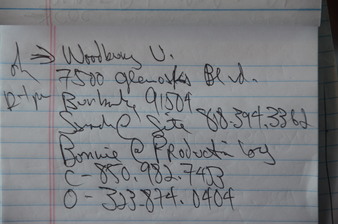 ⇒ Woodbury U.
7500 Glenoaks Blvd.
12-1pm Burbank 91504
Sound @ Site 818.394.3362
Bonnie @ Production Log
C - 850.982.7453
O - 323.874.0404